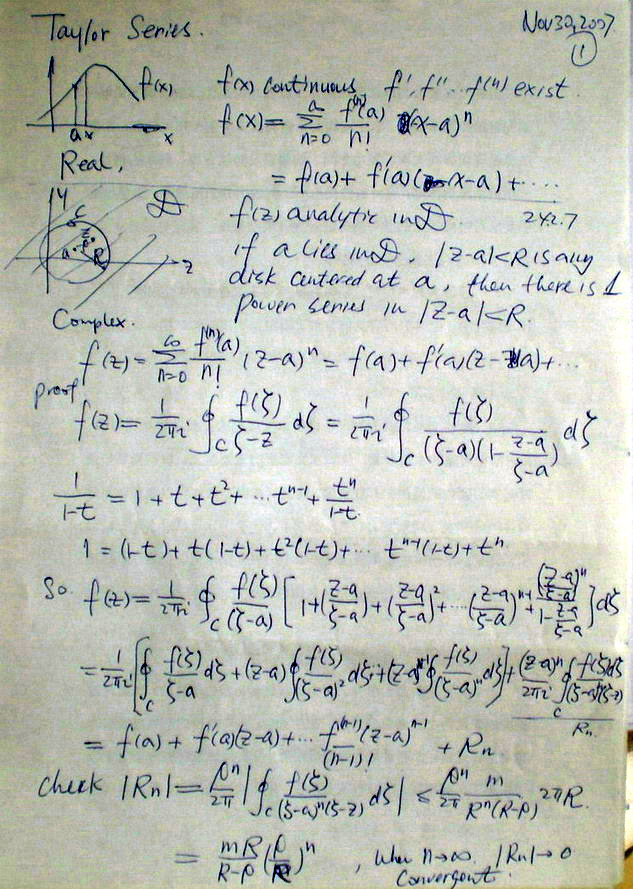 Taylor Series.
Nov 30, 2007
①
f(x)
a x
x
f(x) continuous, f', f'' … f⁽ⁿ⁾ exist.
f(x) = ∞∑n=0 f⁽ⁿ⁾(a)/n! (x-a)ⁿ
Real,
= f(a) + f'(a)(x-a) + ....
y
C
D
z
a
ρ
R
z
f(z) analytic in D
24.2.7
if a lies in D, |z-a|<R is any
disk centered at a, then there is 1
power series in |z-a|<R.
Complex.
f(z) = ∞∑n=0 f⁽ⁿ⁾(a)/n! (z-a)ⁿ = f(a) + f'(a)(z-a) + ...
proof
f(z) = 1/2πi ∮C f(ζ)/(ζ-z) dζ = 1/2πi ∮C f(ζ)/((ζ-a)(1-(z-a)/(ζ-a))) dζ
1/(1-t) = 1 + t + t² + ... tⁿ⁻¹ + tⁿ/(1-t).
1 = (1-t) + t(1-t) + t²(1-t) + ... tⁿ⁻¹(1-t) + tⁿ
So f(z) = 1/2πi ∮C f(ζ)/(ζ-a) [1 + ((z-a)/(ζ-a)) + ((z-a)/(ζ-a))² + ... ((z-a)/(ζ-a))ⁿ⁻¹ + ((z-a)/(ζ-a))ⁿ/(1-(z-a)/(ζ-a))] dζ
= 1/2πi [∮C f(ζ)/(ζ-a) dζ + (z-a) ∮ f(ζ)/(ζ-a)² dζ + (z-a)ⁿ⁻¹ ∮ f(ζ)/(ζ-a)ⁿ dζ] + (z-a)ⁿ/2πi ∮C f(ζ)dζ/((ζ-a)ⁿ(ζ-z))
Rn.
= f(a) + f'(a)(z-a) + ... f⁽ⁿ⁻¹⁾/(n-1)! (z-a)ⁿ⁻¹ + Rn.
Check |Rn| = ρⁿ/2π |∮C f(ζ)/((ζ-a)ⁿ(ζ-z)) dζ| ≤ ρⁿ/2π m/(Rⁿ(R-ρ)) 2πR.
= mR/(R-ρ) (ρ/R)ⁿ , when n→∞, |Rn|→0
Convergent.